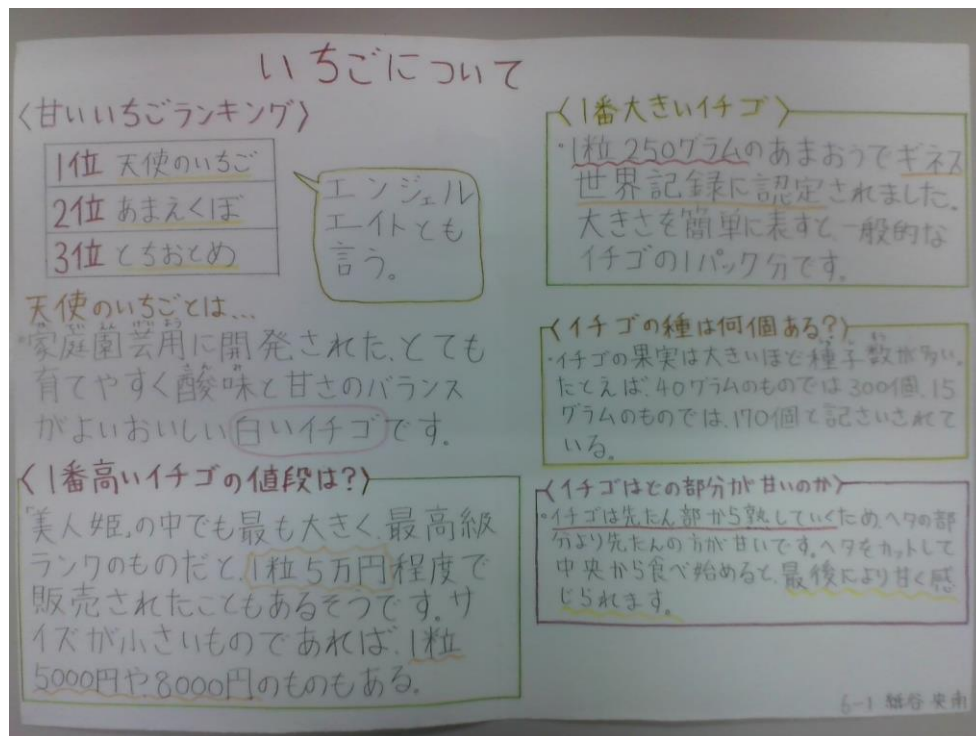 いちごについて
〈甘いいちごランキング〉
1位 天使のいちご
2位 あまえくぼ
3位 とちおとめ
エンジェル
エイトとも
言う。
天使のいちごとは…
・家庭園芸用に開発された、とても
育てやすく酸味と甘さのバランス
がよいおいしい白いイチゴです。
〈1番高いイチゴの値段は?〉
「美人姫」の中でも最も大きく、最高級
ランクのものだと、1粒5万円程度で
販売されたこともあるそうです。サ
イズが小さいものであれば、1粒
5000円や8000円のものもある。
〈1番大きいイチゴ〉
・1粒250グラムのあまおうでギネス
世界記録に認定されました。
大きさを簡単に表すと、一般的な
イチゴの1パック分です。
〈イチゴの種は何個ある?〉
・イチゴの果実は大きいほど種子数が多い。
たとえば、40グラムのものでは300個、15
グラムのものでは、170個と記さいされて
いる。
〈イチゴはどの部分が甘いのか〉
・イチゴは先たん部から熟していくため、ヘタの部
分より先たんの方が甘いです。ヘタをカットして
中央から食べ始めると、最後により甘く感
じられます。
6-1